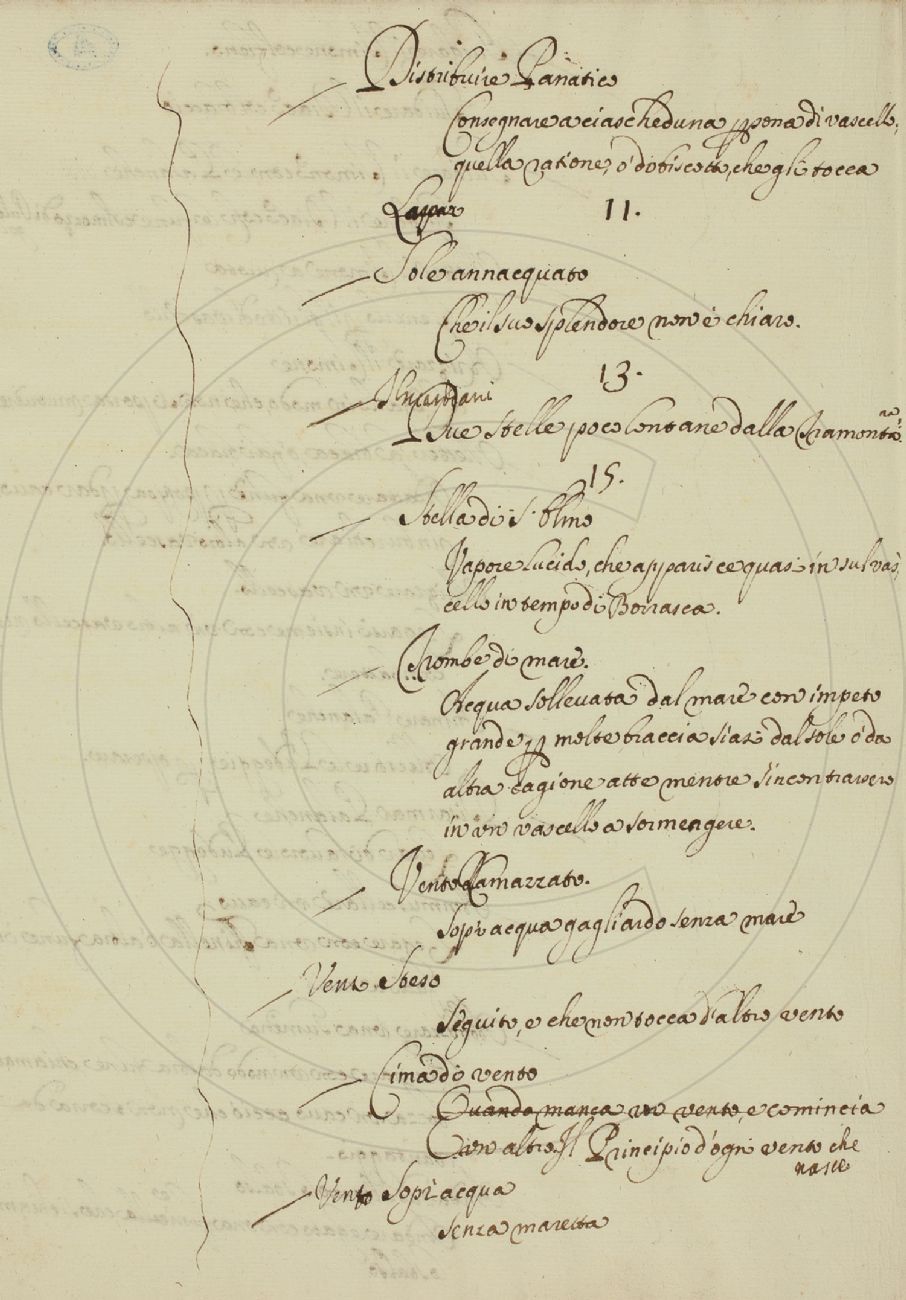 Distribuire Panatico
Consegnare a ciascheduna ꝑsona di vascello,
quella ratione, ò di biscotto, che gli tocca
11.
Sole annacquato
Che il suo splendore non è chiaro.
13.
Due stelle poco lontane dalla Tramontana.
15.
Stella di S. Elmo
Vapore lucido, che apparisce quasi in sul vas
cello in tempo di Borrasca.
Trombe di mare.
Acqua sollevata dal mare con impeto
grande ꝑ molte braccia siasi dal sole ò da
altra cagione atte mentre s'incontrassero
in un vascello a sormengere.
Vento Camazzato.
Sopr acqua gagliardo senza mare
Vento Steso
Seguito, e che non tocca d'altro vento
Cima di vento
Quando manca un vento, e comincia
un altro. Il Principio d'ogni vento che
nasce
Vento Sopr acqua
senza maretta